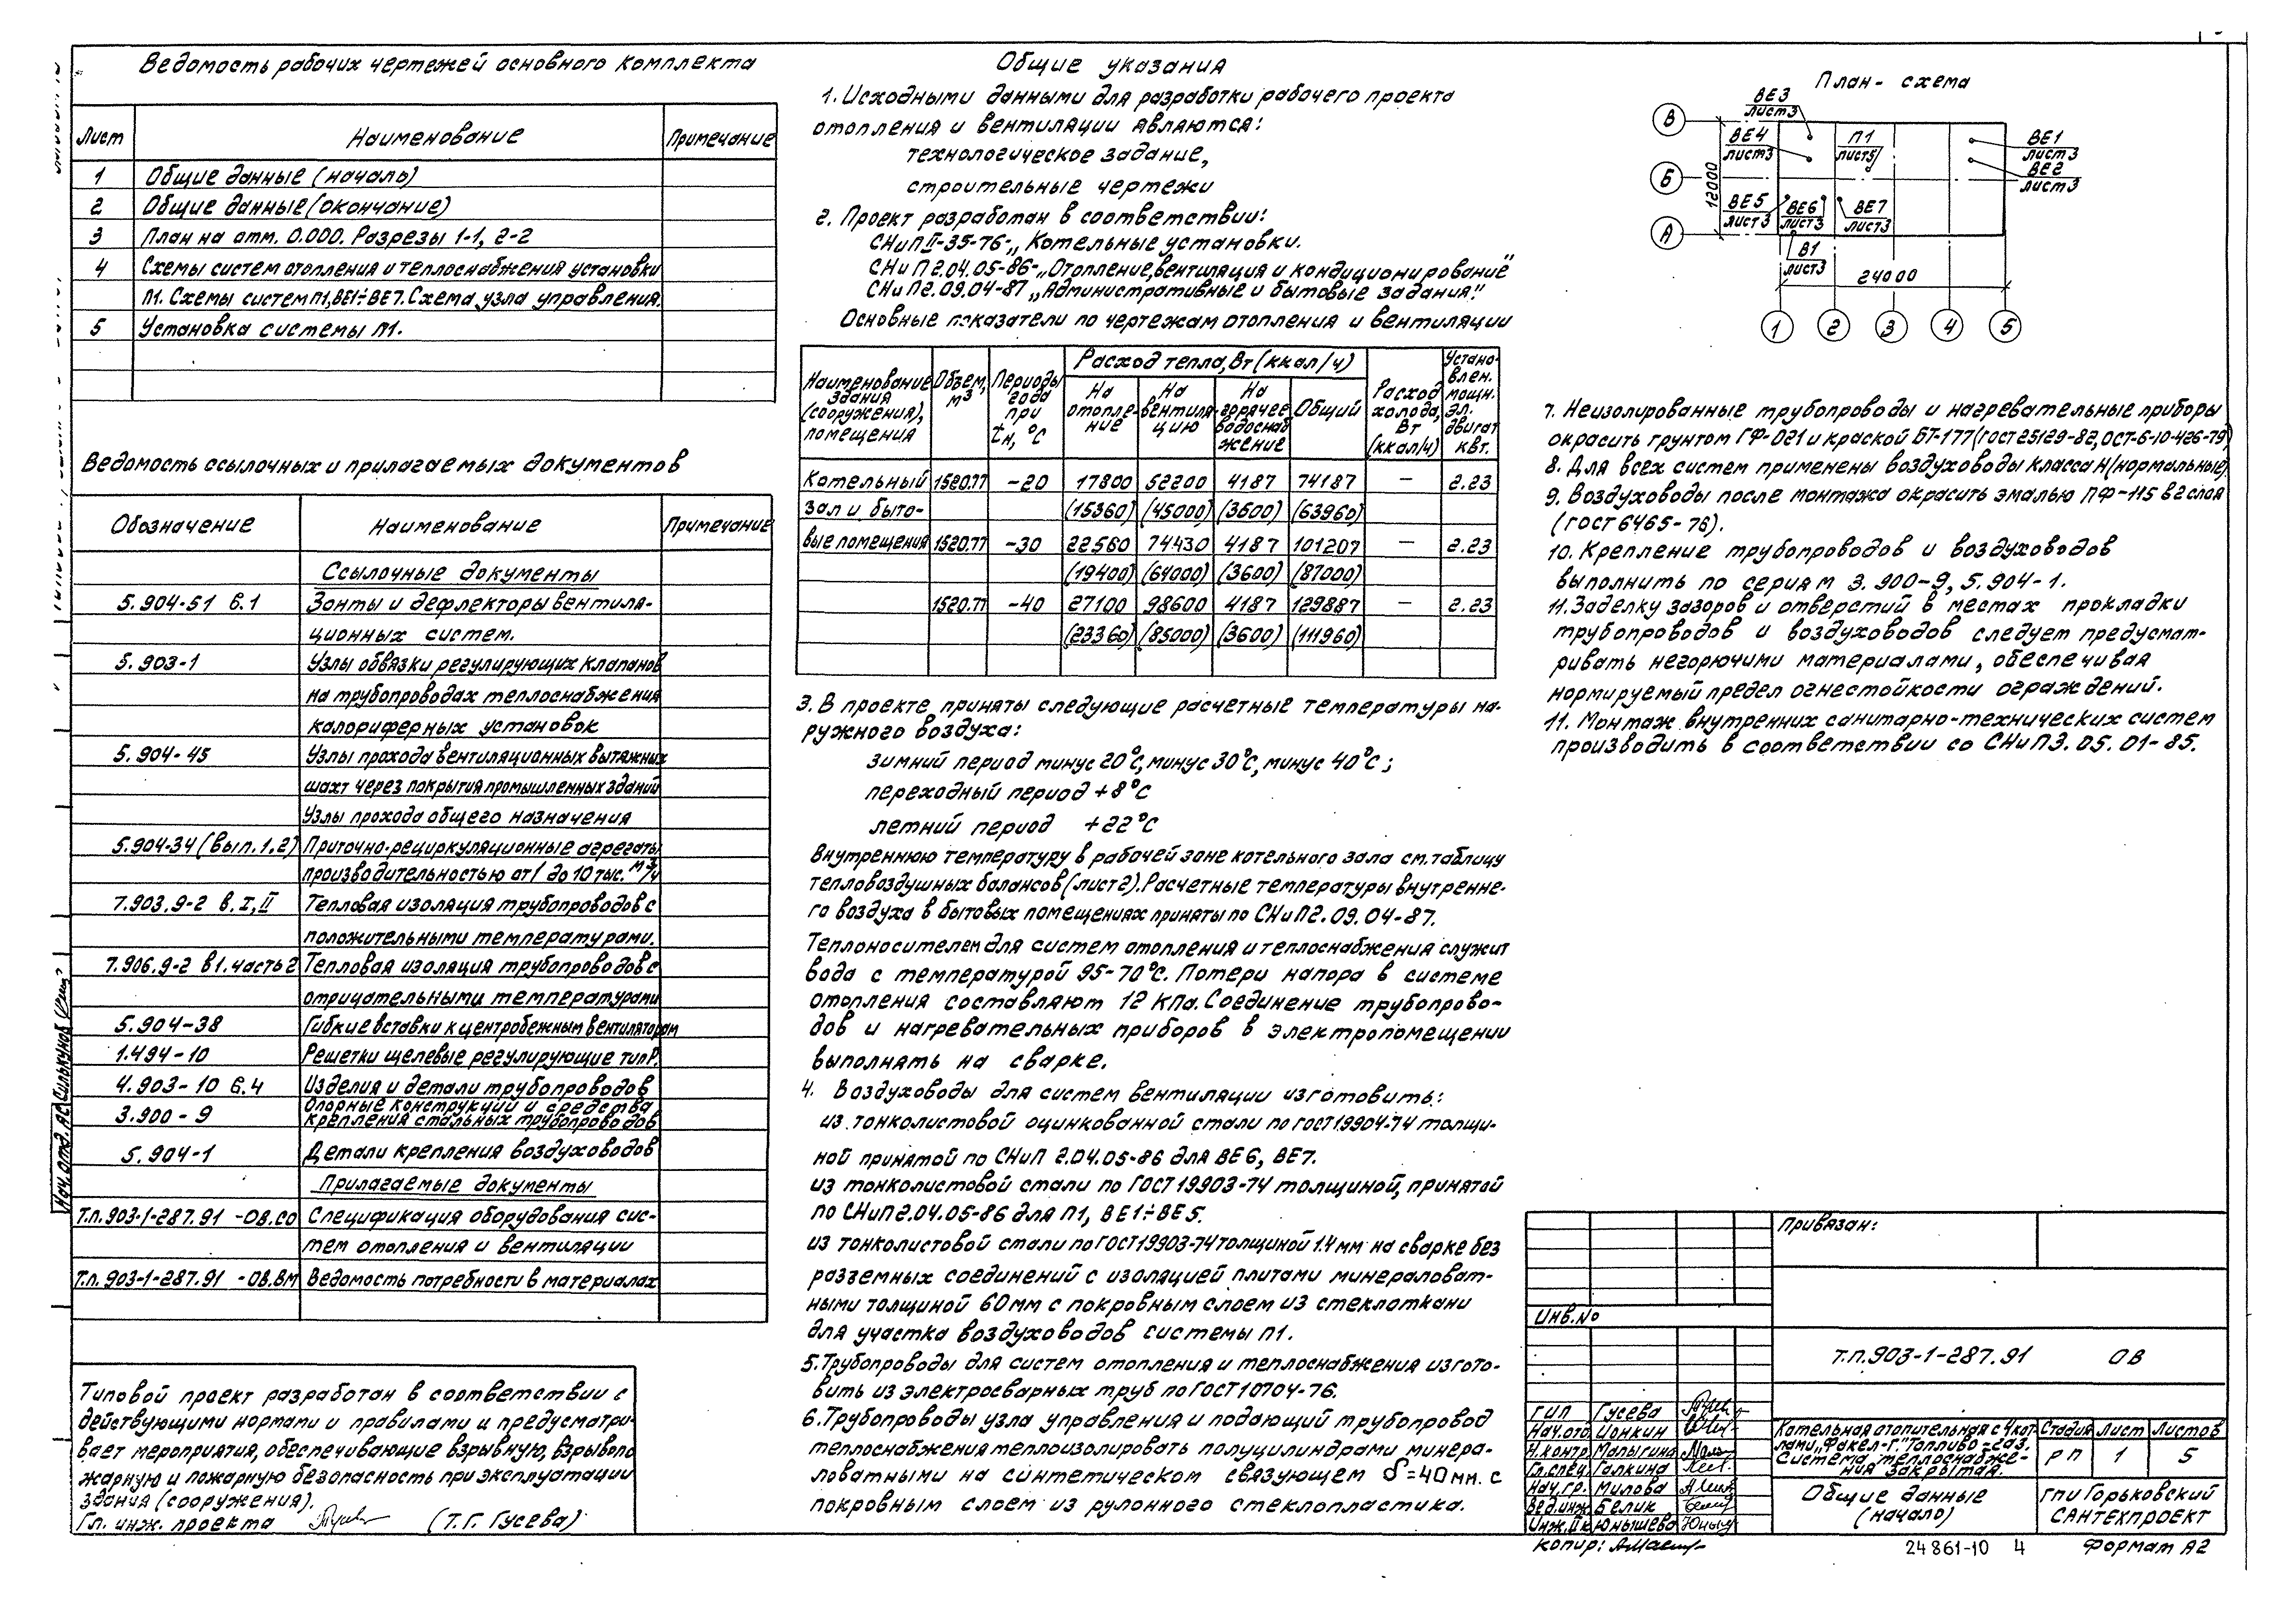 Ведомость рабочих чертежей основного комплекта
Лист Наименование Примечание
1 Общие данные (начало)
2 Общие данные (окончание)
3 План на отм. 0.000. Разрезы 1-1, 2-2
4 Схемы систем отопления и теплоснабжения установки
П1. Схемы систем П1, ВЕ1÷ВЕ7. Схема узла управления.
5 Установка системы П1.
Ведомость ссылочных и прилагаемых документов
Обозначение Наименование Примечание
Ссылочные документы
5.904-51 в.1 Зонты и дефлекторы вентиля-
ционных систем.
5.903-1 Узлы обвязки регулирующих клапанов
на трубопроводах теплоснабжения
калориферных установок
5.904-45 Узлы прохода вентиляционных вытяжных
шахт через покрытия промышленных зданий
Узлы прохода общего назначения
5.904-34 (вып.1.2) Приточно-рециркуляционные агрегаты
производительностью от 1 до 10 тыс. м3/ч
7.903.9-2 в.I,II Тепловая изоляция трубопроводов с
положительными температурами.
7.906.9-2 в1.часть2 Тепловая изоляция трубопроводов с
отрицательными температурами
5.904-38 Гибкие вставки к центробежным вентиляторам
1.494-10 Решетки щелевые регулирующие тип Р.
4.903-10 в.4 Изделия и детали трубопроводов
3.900-9 Опорные конструкции и средства
крепления стальных трубопроводов
5.904-1 Детали крепления воздуховодов
Прилагаемые документы
Т.п. 903-1-287.91 -ОВ.СО Спецификация оборудования сис-
тем отопления и вентиляции
Т.п. 903-1-287.91 -ОВ.ВМ Ведомость потребности в материалах
Типовой проект разработан в соответствии с
действующими нормами и правилами и предусматри-
вает мероприятия, обеспечивающие взрывную, взрывопо
жарную и пожарную безопасность при эксплуатации
здания (сооружения).
Гл. инж. проекта (Т.Г. Гусева)
Нач. отд. АС Силькунов
Общие указания
1. Исходными данными для разработки рабочего проекта
отопления и вентиляции являются:
технологическое задание,
строительные чертежи
2. Проект разработан в соответствии:
СНиП II-35-76-„Котельные установки.
СНиП 2.04.05-86-„Отопление, вентиляция и кондиционирование"
СНиП 2.09.04-87 „Административные и бытовые задания."
Основные показатели по чертежам отопления и вентиляции
Наименование здания (сооружения), помещения Объем, м3 Периоды года при tн, °С Расход тепла, Вт (ккал/ч) Расход холода, Вт (ккал/ч) Устано-влен. мощн. эл. двигат квт.
На отопле-ние На вентиля-цию На горячее водоснаб жение Общий
Котельный 1520.77 -20 17800 52200 4187 74187 — 2.23
зал и быто- (15360) (45000) (3600) (63960)
вые помещения 1520.77 -30 22560 74430 4187 101207 — 2.23
(19400) (64000) (3600) (87000)
1520.77 -40 27100 98600 4187 129887 — 2.23
(23360) (85000) (3600) (111960)
3. В проекте приняты следующие расчетные температуры на-
ружного воздуха:
зимний период минус 20°С, минус 30°С, минус 40°С;
переходный период +8°С
летний период +22°С
Внутреннюю температуру в рабочей зоне котельного зала см. таблицу
тепловоздушных балансов (лист 2). Расчетные температуры внутренне-
го воздуха в бытовых помещениях приняты по СНиП 2.09.04-87.
Теплоносителем для систем отопления и теплоснабжения служит
вода с температурой 95-70°С. Потери напора в системе
отопления составляют 12 кПа. Соединение трубопрово-
дов и нагревательных приборов в электропомещении
выполнять на сварке.
4. Воздуховоды для систем вентиляции изготовить:
из тонколистовой оцинкованной стали по ГОСТ 19904-74 толщи-
ной принятой по СНиП 2.04.05-86 для ВЕ6, ВЕ7.
из тонколистовой стали по ГОСТ 19903-74 толщиной, принятой
по СНиП 2.04.05-86 для П1, ВЕ1÷ВЕ5.
из тонколистовой стали по ГОСТ 19903-74 толщиной 1.4 мм на сварке без
разъемных соединений с изоляцией плитами минераловат-
ными толщиной 60 мм с покровным слоем из стеклоткани
для участка воздуховодов системы П1.
5. Трубопроводы для систем отопления и теплоснабжения изгото-
вить из электросварных труб по ГОСТ 10704-76.
6. Трубопроводы узла управления и подающий трубопровод
теплоснабжения теплоизолировать полуцилиндрами минера-
ловатными на синтетическом связующем δ=40мм. с
покровным слоем из рулонного стеклопластика.
План-схема
ВЕ3 лист3
ВЕ4 лист3
П1 лист5
ВЕ1 лист3
ВЕ2 лист3
ВЕ5 лист3
ВЕ6 лист3
ВЕ7 лист3
В1 лист3
В
Б
А
12000
24000
1 2 3 4 5
7. Неизолированные трубопроводы и нагревательные приборы
окрасить грунтом ГФ-021 и краской БТ-177 (ГОСТ 25129-82, ОСТ-6-10-426-79)
8. Для всех систем применены воздуховоды класса Н (нормальные)
9. Воздуховоды после монтажа окрасить эмалью ПФ-115 в 2 слоя
(ГОСТ 6465-76).
10. Крепление трубопроводов и воздуховодов
выполнить по сериям 3.900-9, 5.904-1.
11. Заделку зазоров и отверстий в местах прокладки
трубопроводов и воздуховодов следует предусмат-
ривать негорючими материалами, обеспечивая
нормируемый предел огнестойкости ограждений.
11. Монтаж внутренних санитарно-технических систем
производить в соответствии со СНиП 3.05.01-85.
Привязан:
Инв.No
Т.п.903-1-287.91 ОВ
ГИП Гусева
Нач.отд Ионкин
Н.контр Малыгина
Гл.спец. Галкина
Нач.гр. Милова
Вед.инж Белик
Инж.IIк Юнышева
Котельная отопительная с 4 кот-
лами „Факел-Г". Топливо - газ.
Система теплоснабже-
ния закрытая.
Стадия Лист Листов
РП 1 5
Общие данные
(начало)
ГПИ Горьковский
САНТЕХПРОЕКТ
Копир:
24861-10 4
Формат А2